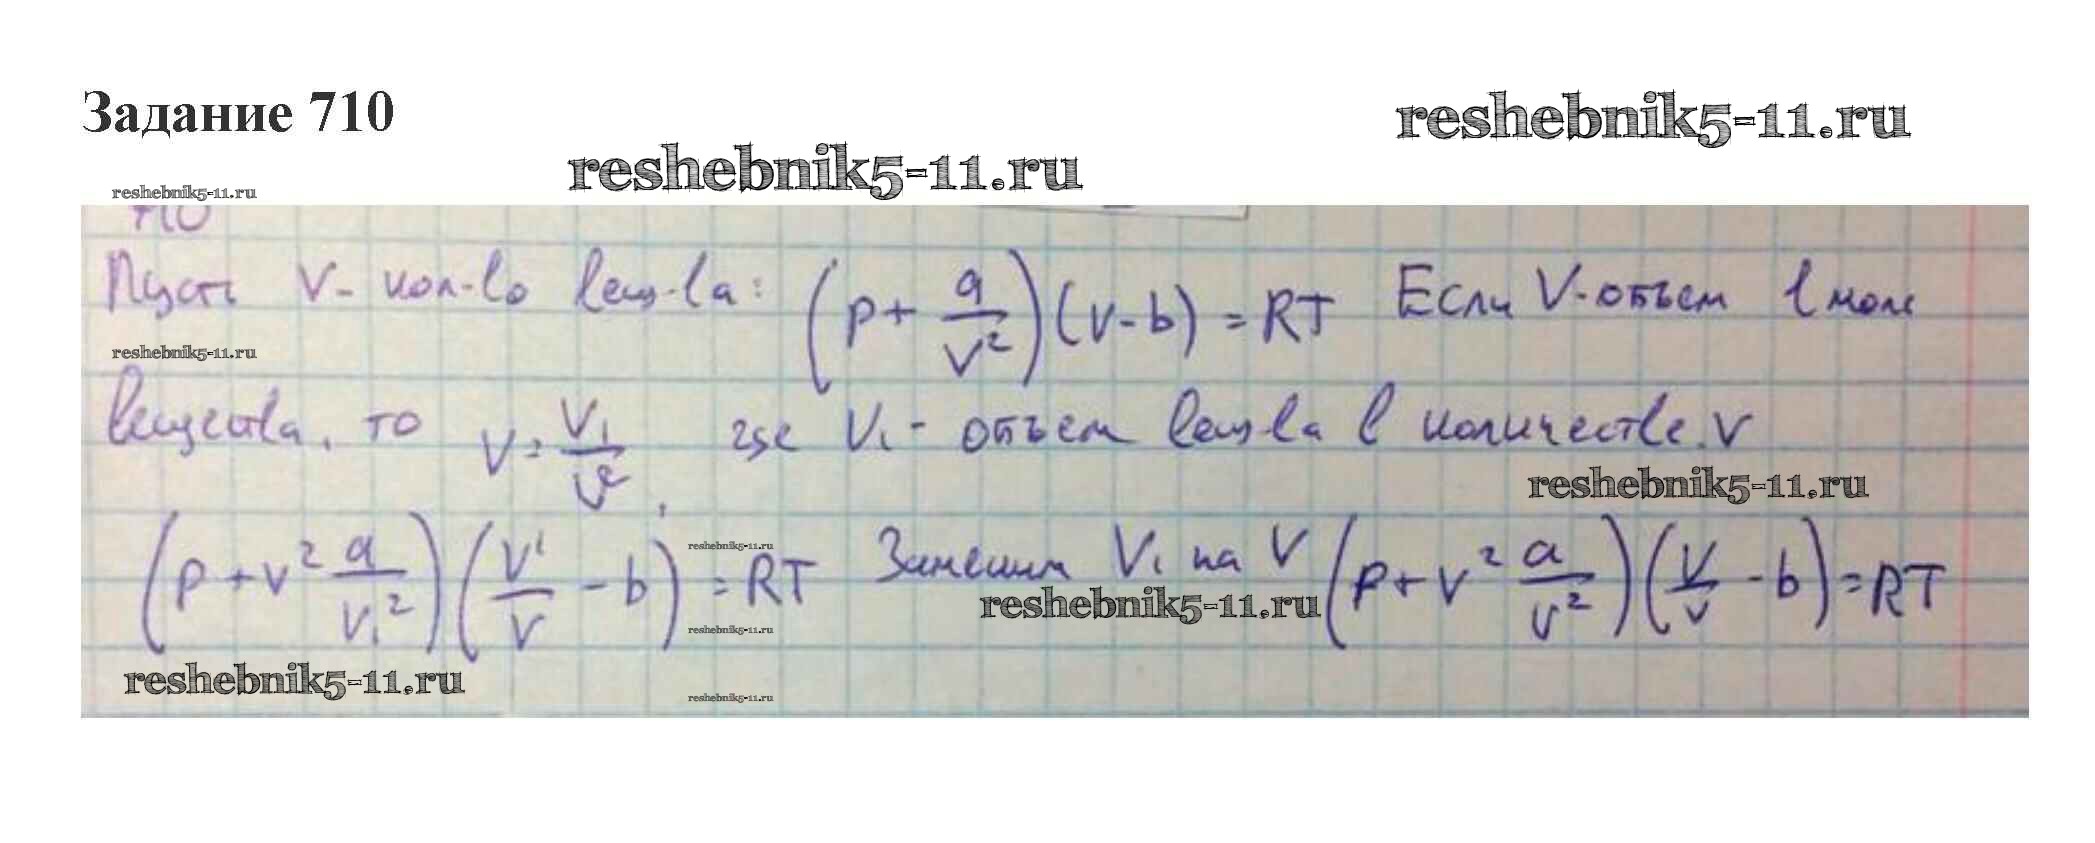 Задание 710
reshebnik5-11.ru
reshebnik5-11.ru
reshebnik5-11.ru
710
Пусть V - кол-во вещ-ва: (p + a/V²)(V - b) = RT Если V - объем 1 моля
reshebnik5-11.ru
вещества, то V = V₁/V², где V₁ - объем вещ-ва в количестве V
reshebnik5-11.ru
(p + V² a/V₁²)(V¹/V - b) = RT Заменим V₁ на V (p + V² a/V²)(V/V - b) = RT
reshebnik5-11.ru
reshebnik5-11.ru
reshebnik5-11.ru
reshebnik5-11.ru
reshebnik5-11.ru